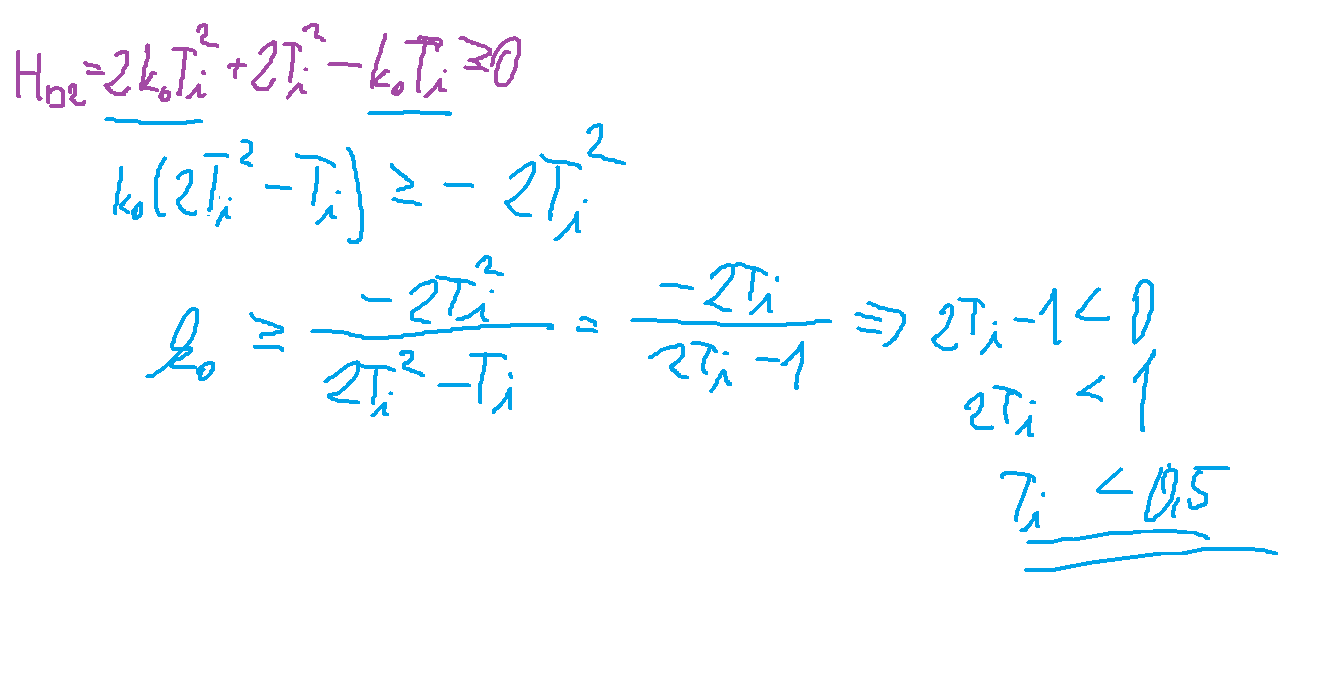 H□2 = 2k₀Tᵢ² + 2Tᵢ² − k₀Tᵢ ≥ 0
k₀(2Tᵢ² − Tᵢ) ≥ − 2Tᵢ²
k₀ ≥ −2Tᵢ² / (2Tᵢ² − Tᵢ) = −2Tᵢ / (2Tᵢ − 1) ⇒ 2Tᵢ − 1 < 0
2Tᵢ < 1
Tᵢ < 0,5